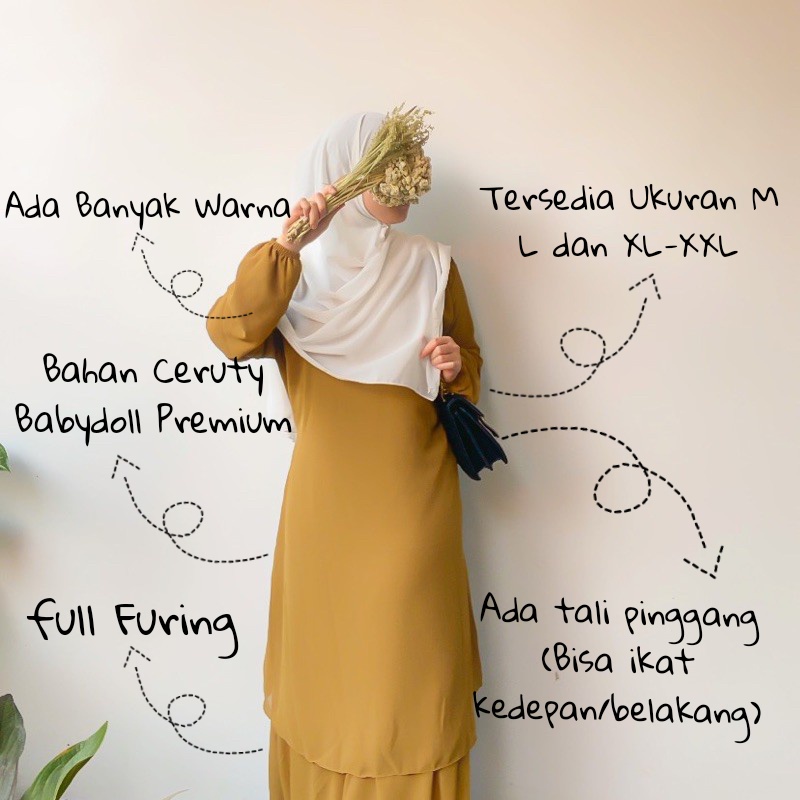 Ada Banyak Warna
Tersedia Ukuran M
L dan XL-XXL
Bahan Ceruty
Babydoll Premium
full Furing
Ada tali pinggang
(Bisa ikat
kedepan/belakang)